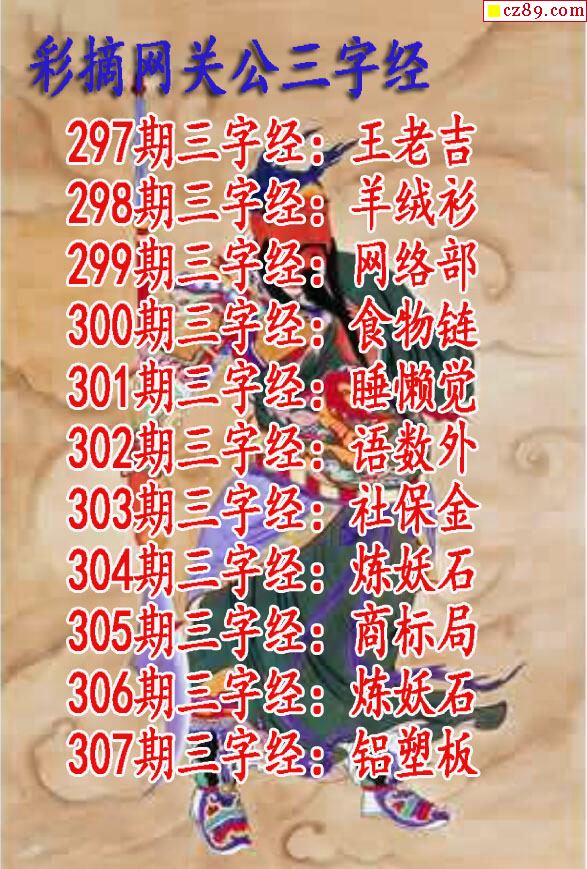 cz89.com
彩摘网关公三字经
297期三字经：王老吉
298期三字经：羊绒衫
299期三字经：网络部
300期三字经：食物链
301期三字经：睡懒觉
302期三字经：语数外
303期三字经：社保金
304期三字经：炼妖石
305期三字经：商标局
306期三字经：炼妖石
307期三字经：铝塑板